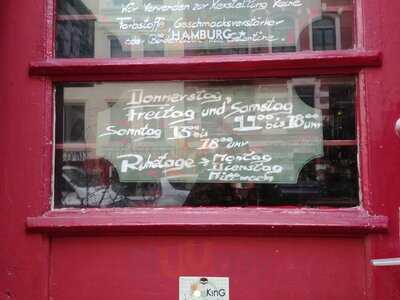 Wir Verwenden zur Herstellung Keine
Farbstoffe Geschmacksverstärker
oder
HAMBURG
Donnerstag,
Freitag und Samstag
11⁰⁰ bis 18⁰⁰ uhr
Sonntag 13⁰⁰ bis
18⁰⁰ uhr
Ruhetage → Montag
Dienstag
Mittwoch
KinG